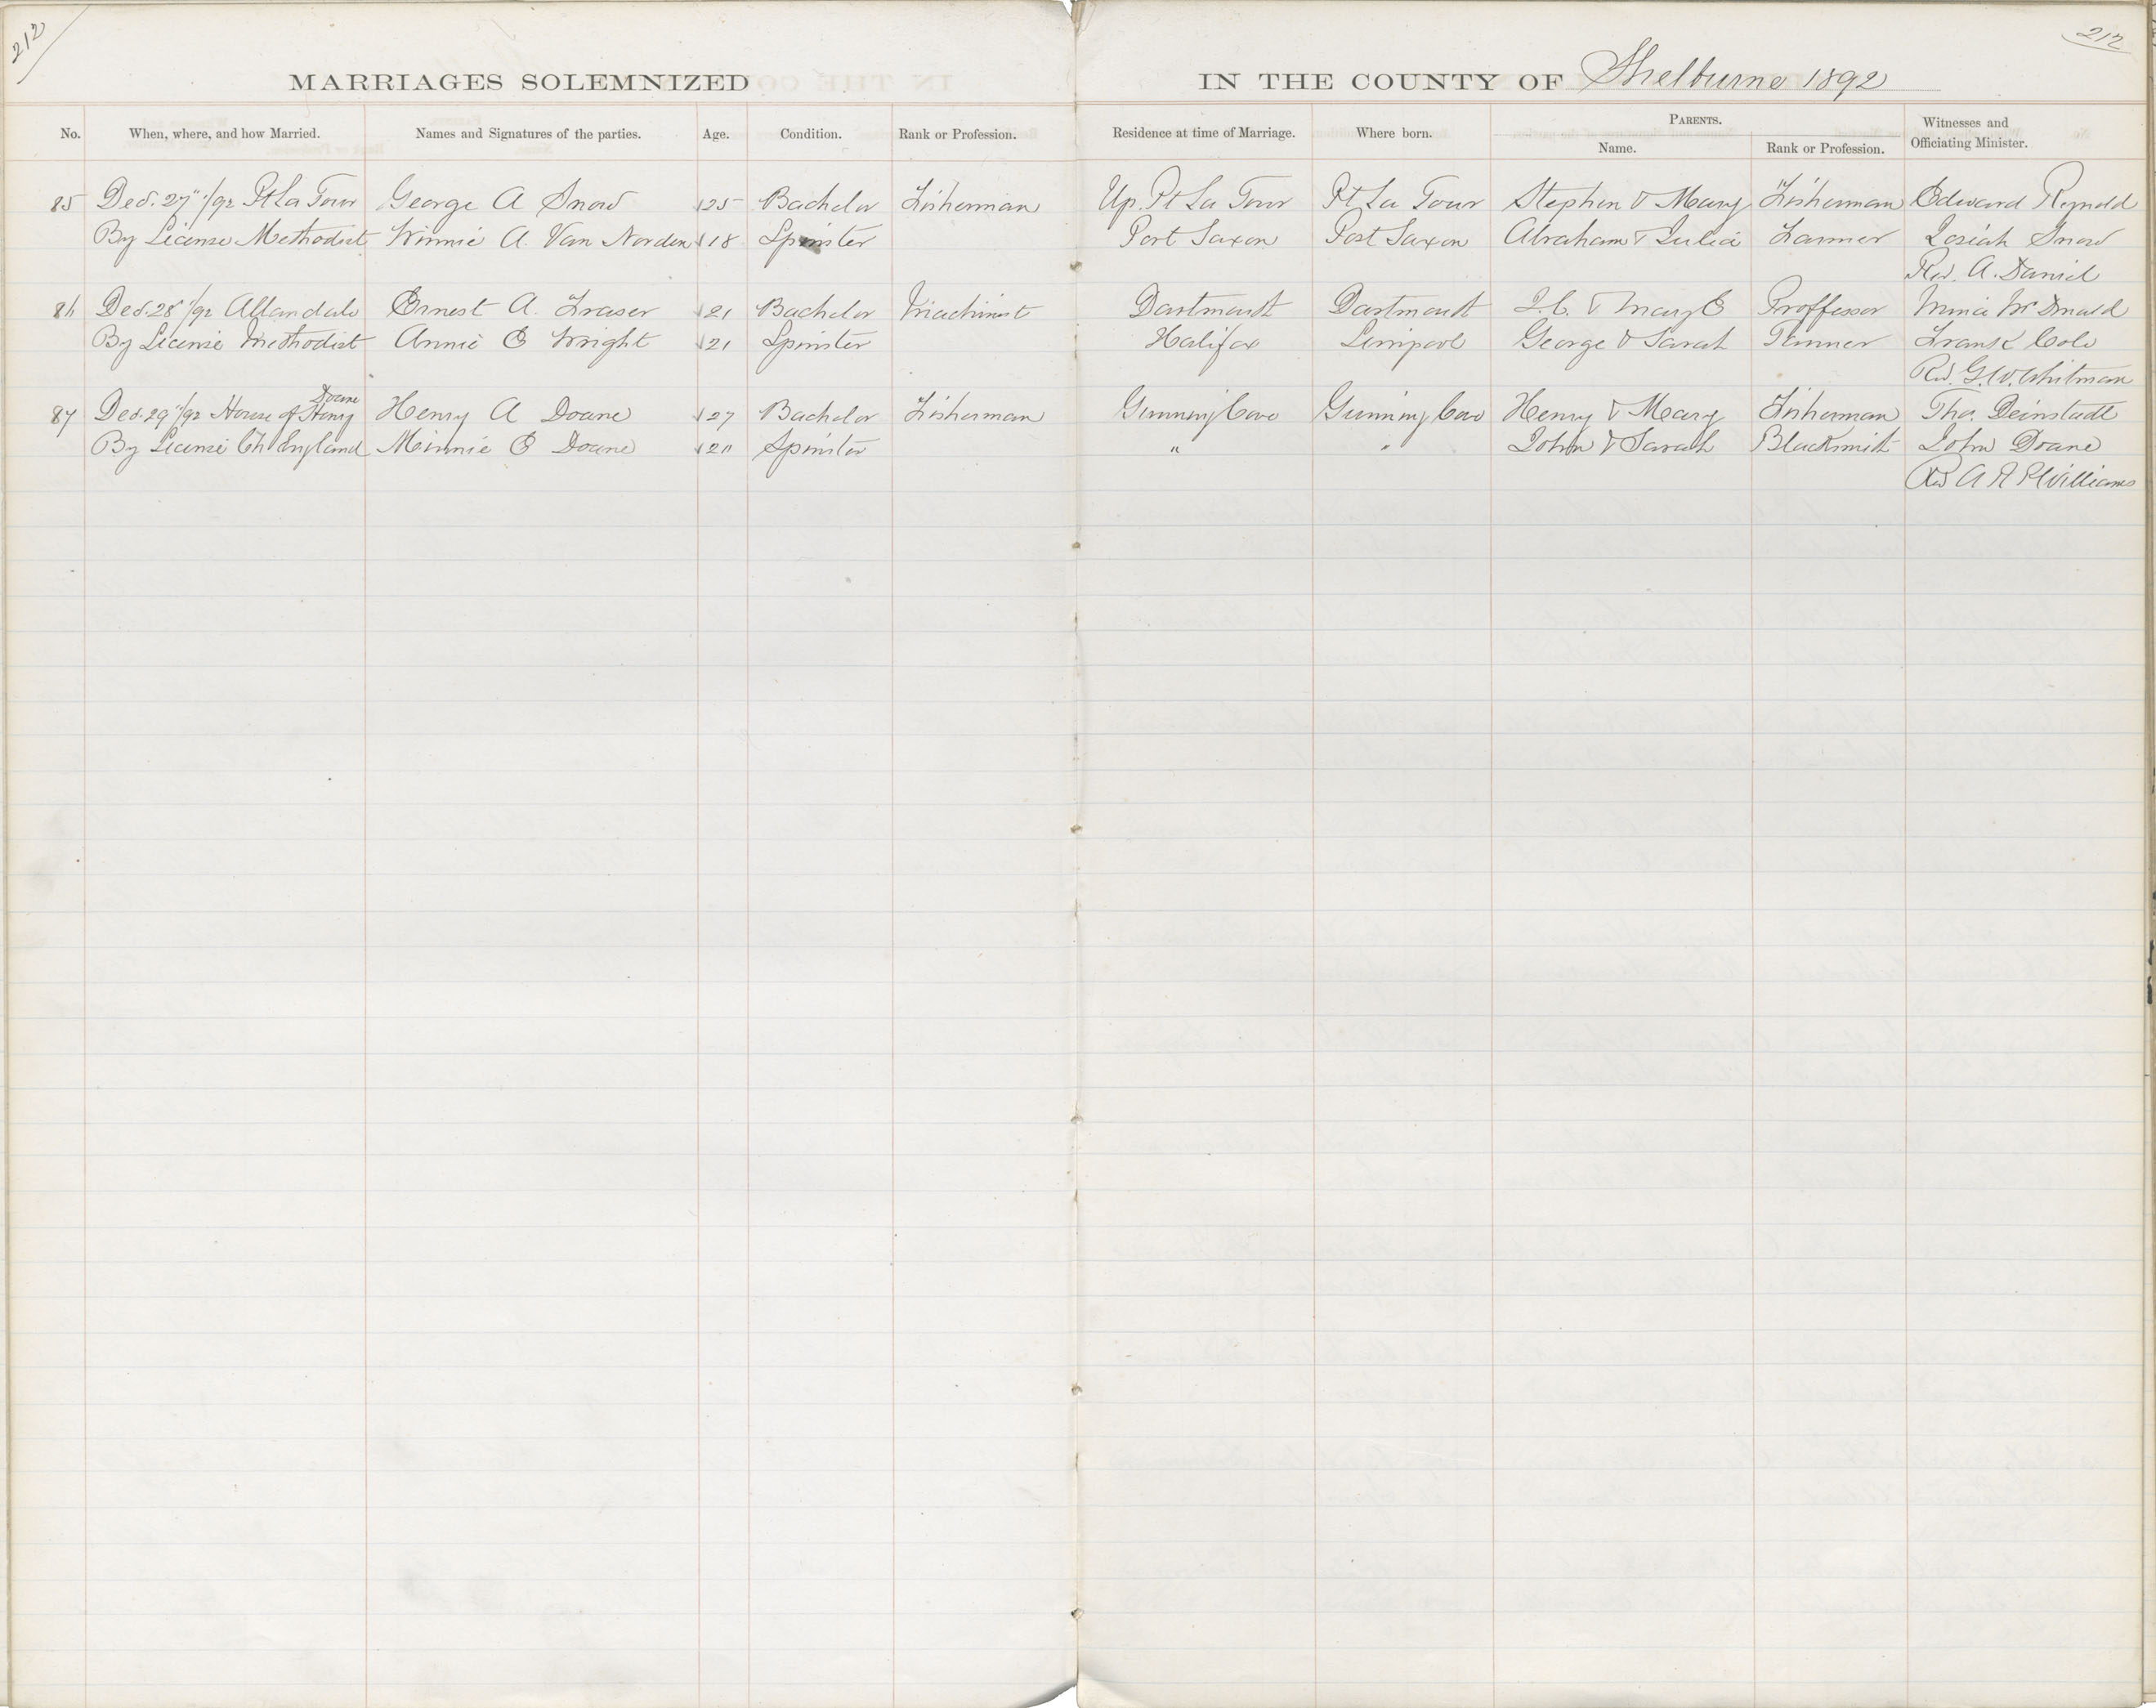 212
212
MARRIAGES SOLEMNIZED IN THE COUNTY OF Shelburne 1892
No. When, where, and how Married. Names and Signatures of the parties. Age. Condition. Rank or Profession. Residence at time of Marriage. Where born. PARENTS. Name. Rank or Profession. Witnesses and Officiating Minister.
85 Dec. 27"/92 Pt La Tour George A Snow 25 Bachelor Fisherman Up. Pt La Tour Pt La Tour Stephen & Mary Fisherman Edward Reynold
By License Methodist Winnie A. Van Norden 18 Spinster Port Saxon Port Saxon Abraham & Julia Farmer Josiah Snow
Rev. A. Daniel
86 Dec. 28"/92 Allandale Ernest A. Fraser 21 Bachelor Machinist Dartmouth Dartmouth J.C. & Mary E Proffessor Minnie McDonald
By License Methodist Annie E Wright 21 Spinster Halifax Liverpool George & Sarah Tanner Frank Cole
Rev. G. W. Whitman
Doane
87 Dec. 29"/92 House of Henry Henry A Doane 27 Bachelor Fisherman Gunning Cove Gunning Cove Henry & Mary Fisherman Thos. Deinstadt
By License Ch England Minnie E Doane 20 Spinster " " John & Sarah Blacksmith John Doane
Rev A R P Williams